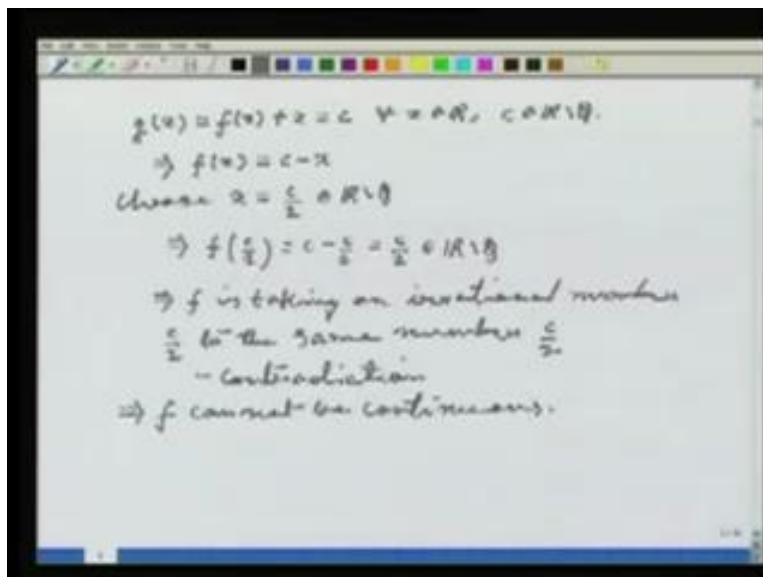 g(x) = f(x) + x = c ∀ x ∈ ℝ, c ∈ ℝ\ℚ.
⇒ f(x) = c - x
Choose x = c/2 ∈ ℝ\ℚ
⇒ f(c/2) = c - c/2 = c/2 ∈ ℝ\ℚ
⇒ f is taking an irrational number
c/2 to the same number c/2.
- contradiction
⇒ f cannot be continuous.